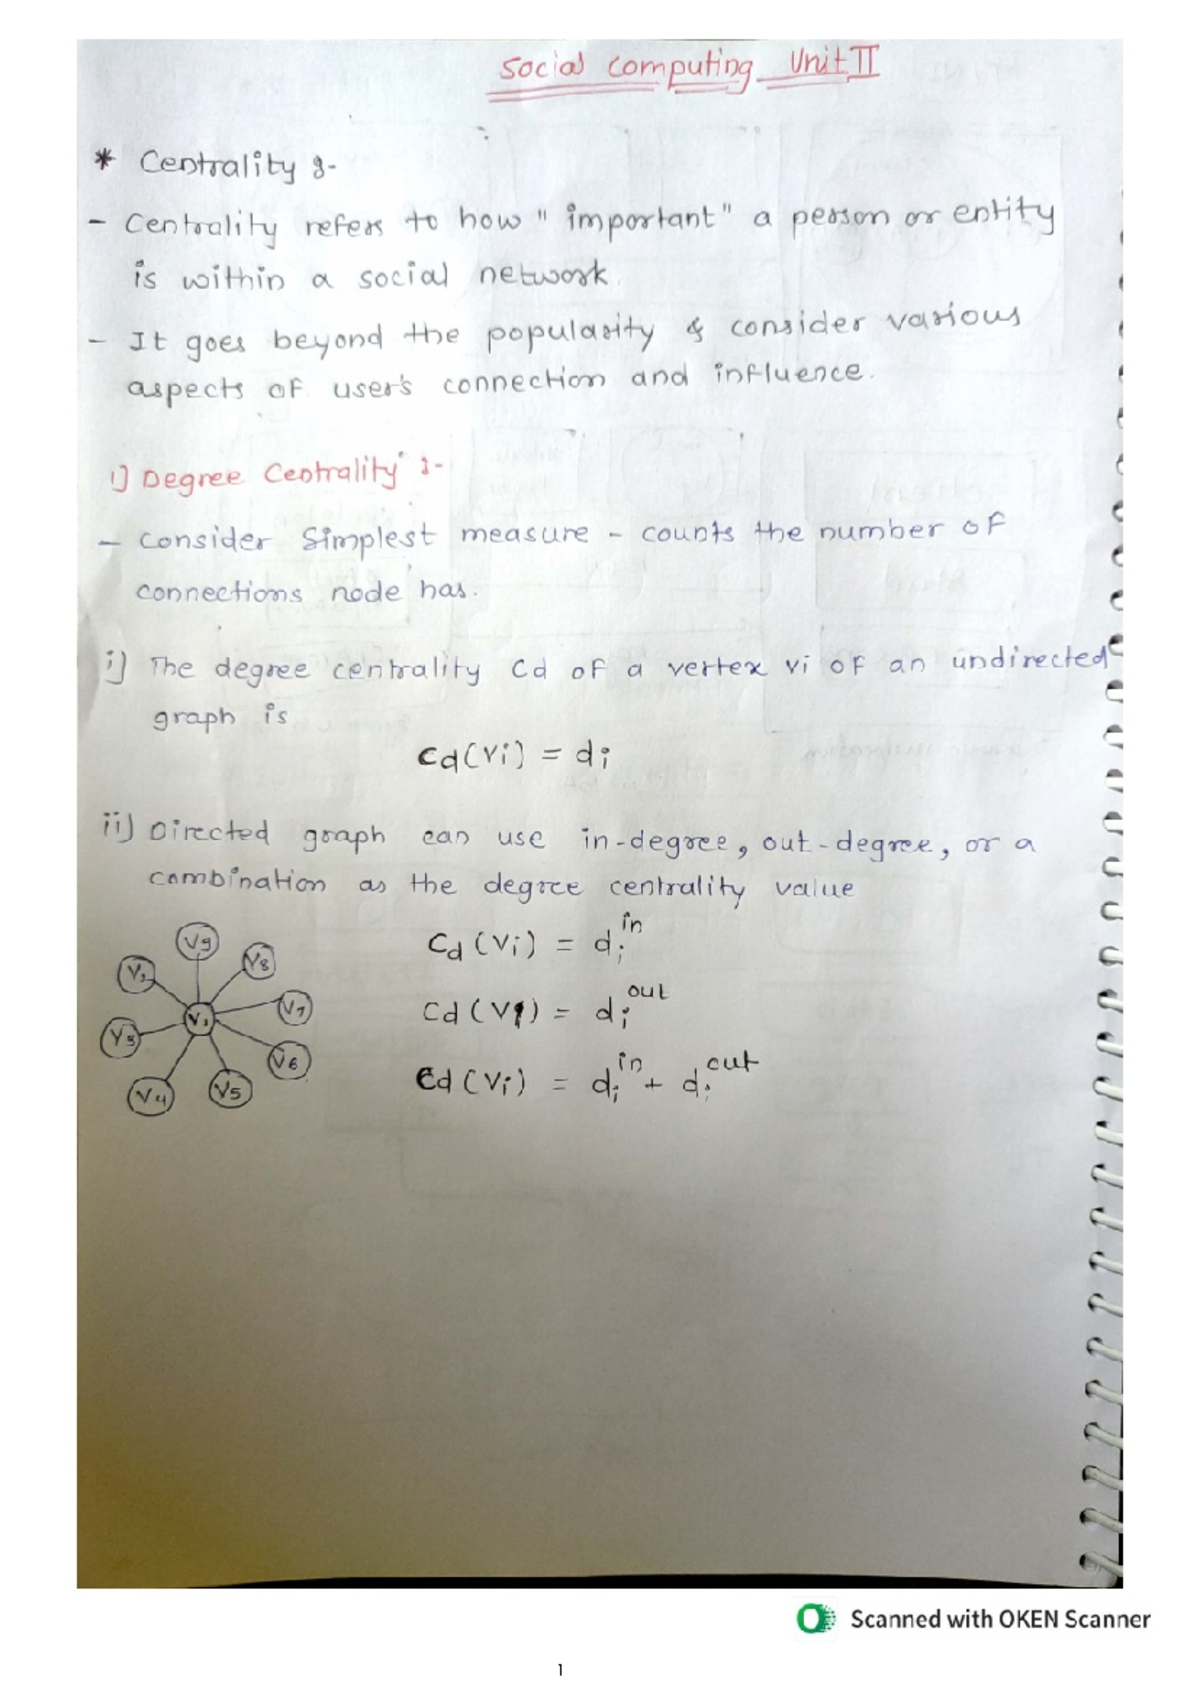 Social Computing Unit II
* Centrality :-
- Centrality refers to how "important" a person or entity
is within a social network.
- It goes beyond the popularity & consider various
aspects of user's connection and influence.
1) Degree Centrality :-
- Consider Simplest measure - counts the number of
connections node has.
i) The degree centrality Cd of a vertex vi of an undirected
graph is
Cd(vi) = di
ii) Directed graph can use in-degree, out-degree, or a
combination as the degree centrality value
Cd (vi) = di^in
Cd (vi) = di^out
Cd (vi) = di^in + di^out
V9
V8
V7
V1
V3
V6
V4
V5
Scanned with OKEN Scanner
1